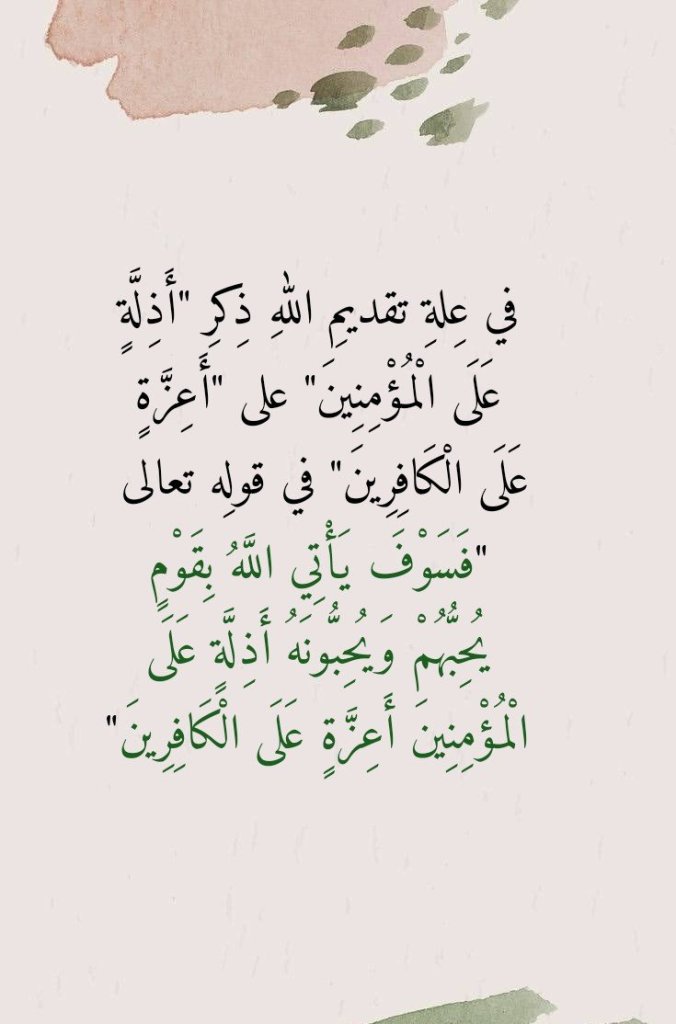 في عِلةِ تقديمِ اللهِ ذِكرِ "أَذِلَّةٍ
عَلَى الْمُؤْمِنِينَ" على "أَعِزَّةٍ
عَلَى الْكَافِرِينَ" في قولِه تعالى
"فَسَوْفَ يَأْتِي اللَّهُ بِقَوْمٍ
يُحِبُّهُمْ وَيُحِبُّونَهُ أَذِلَّةٍ عَلَى
الْمُؤْمِنِينَ أَعِزَّةٍ عَلَى الْكَافِرِينَ"